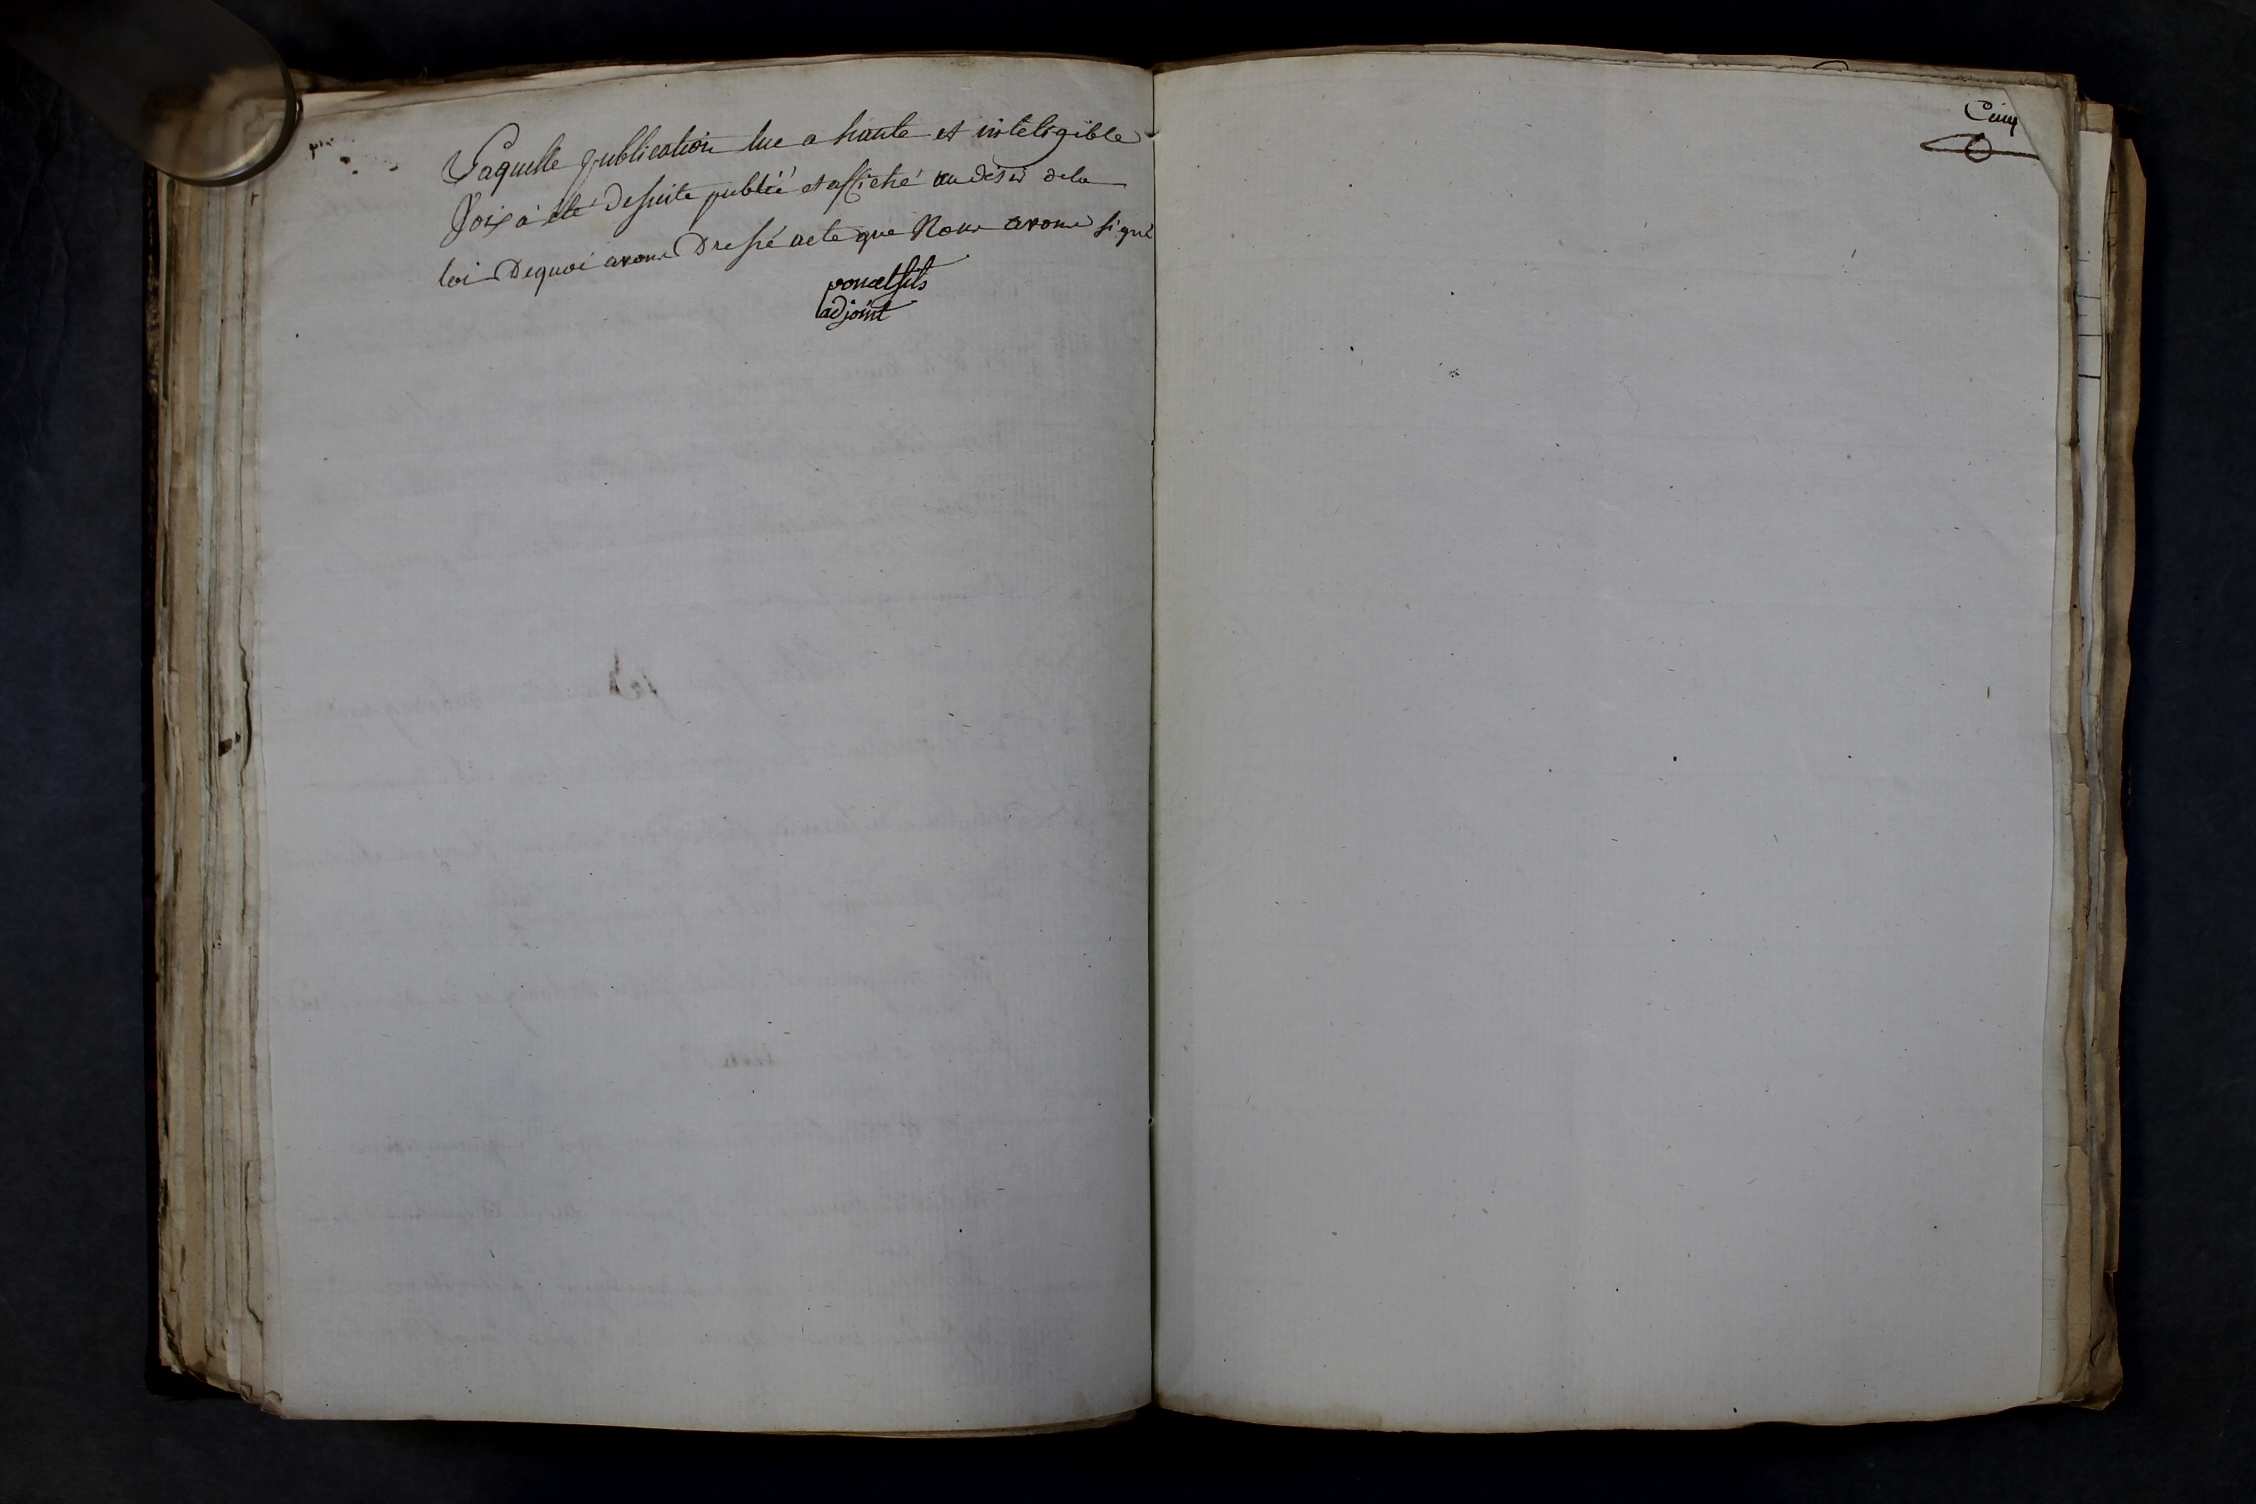 Laquelle publication lue a haute et inteligible
Voix a été desuite publié et affiché au désir dela
loi Dequoi avons Dressé acte que Nous avons signé
poncet fils
adjoint
Cinq